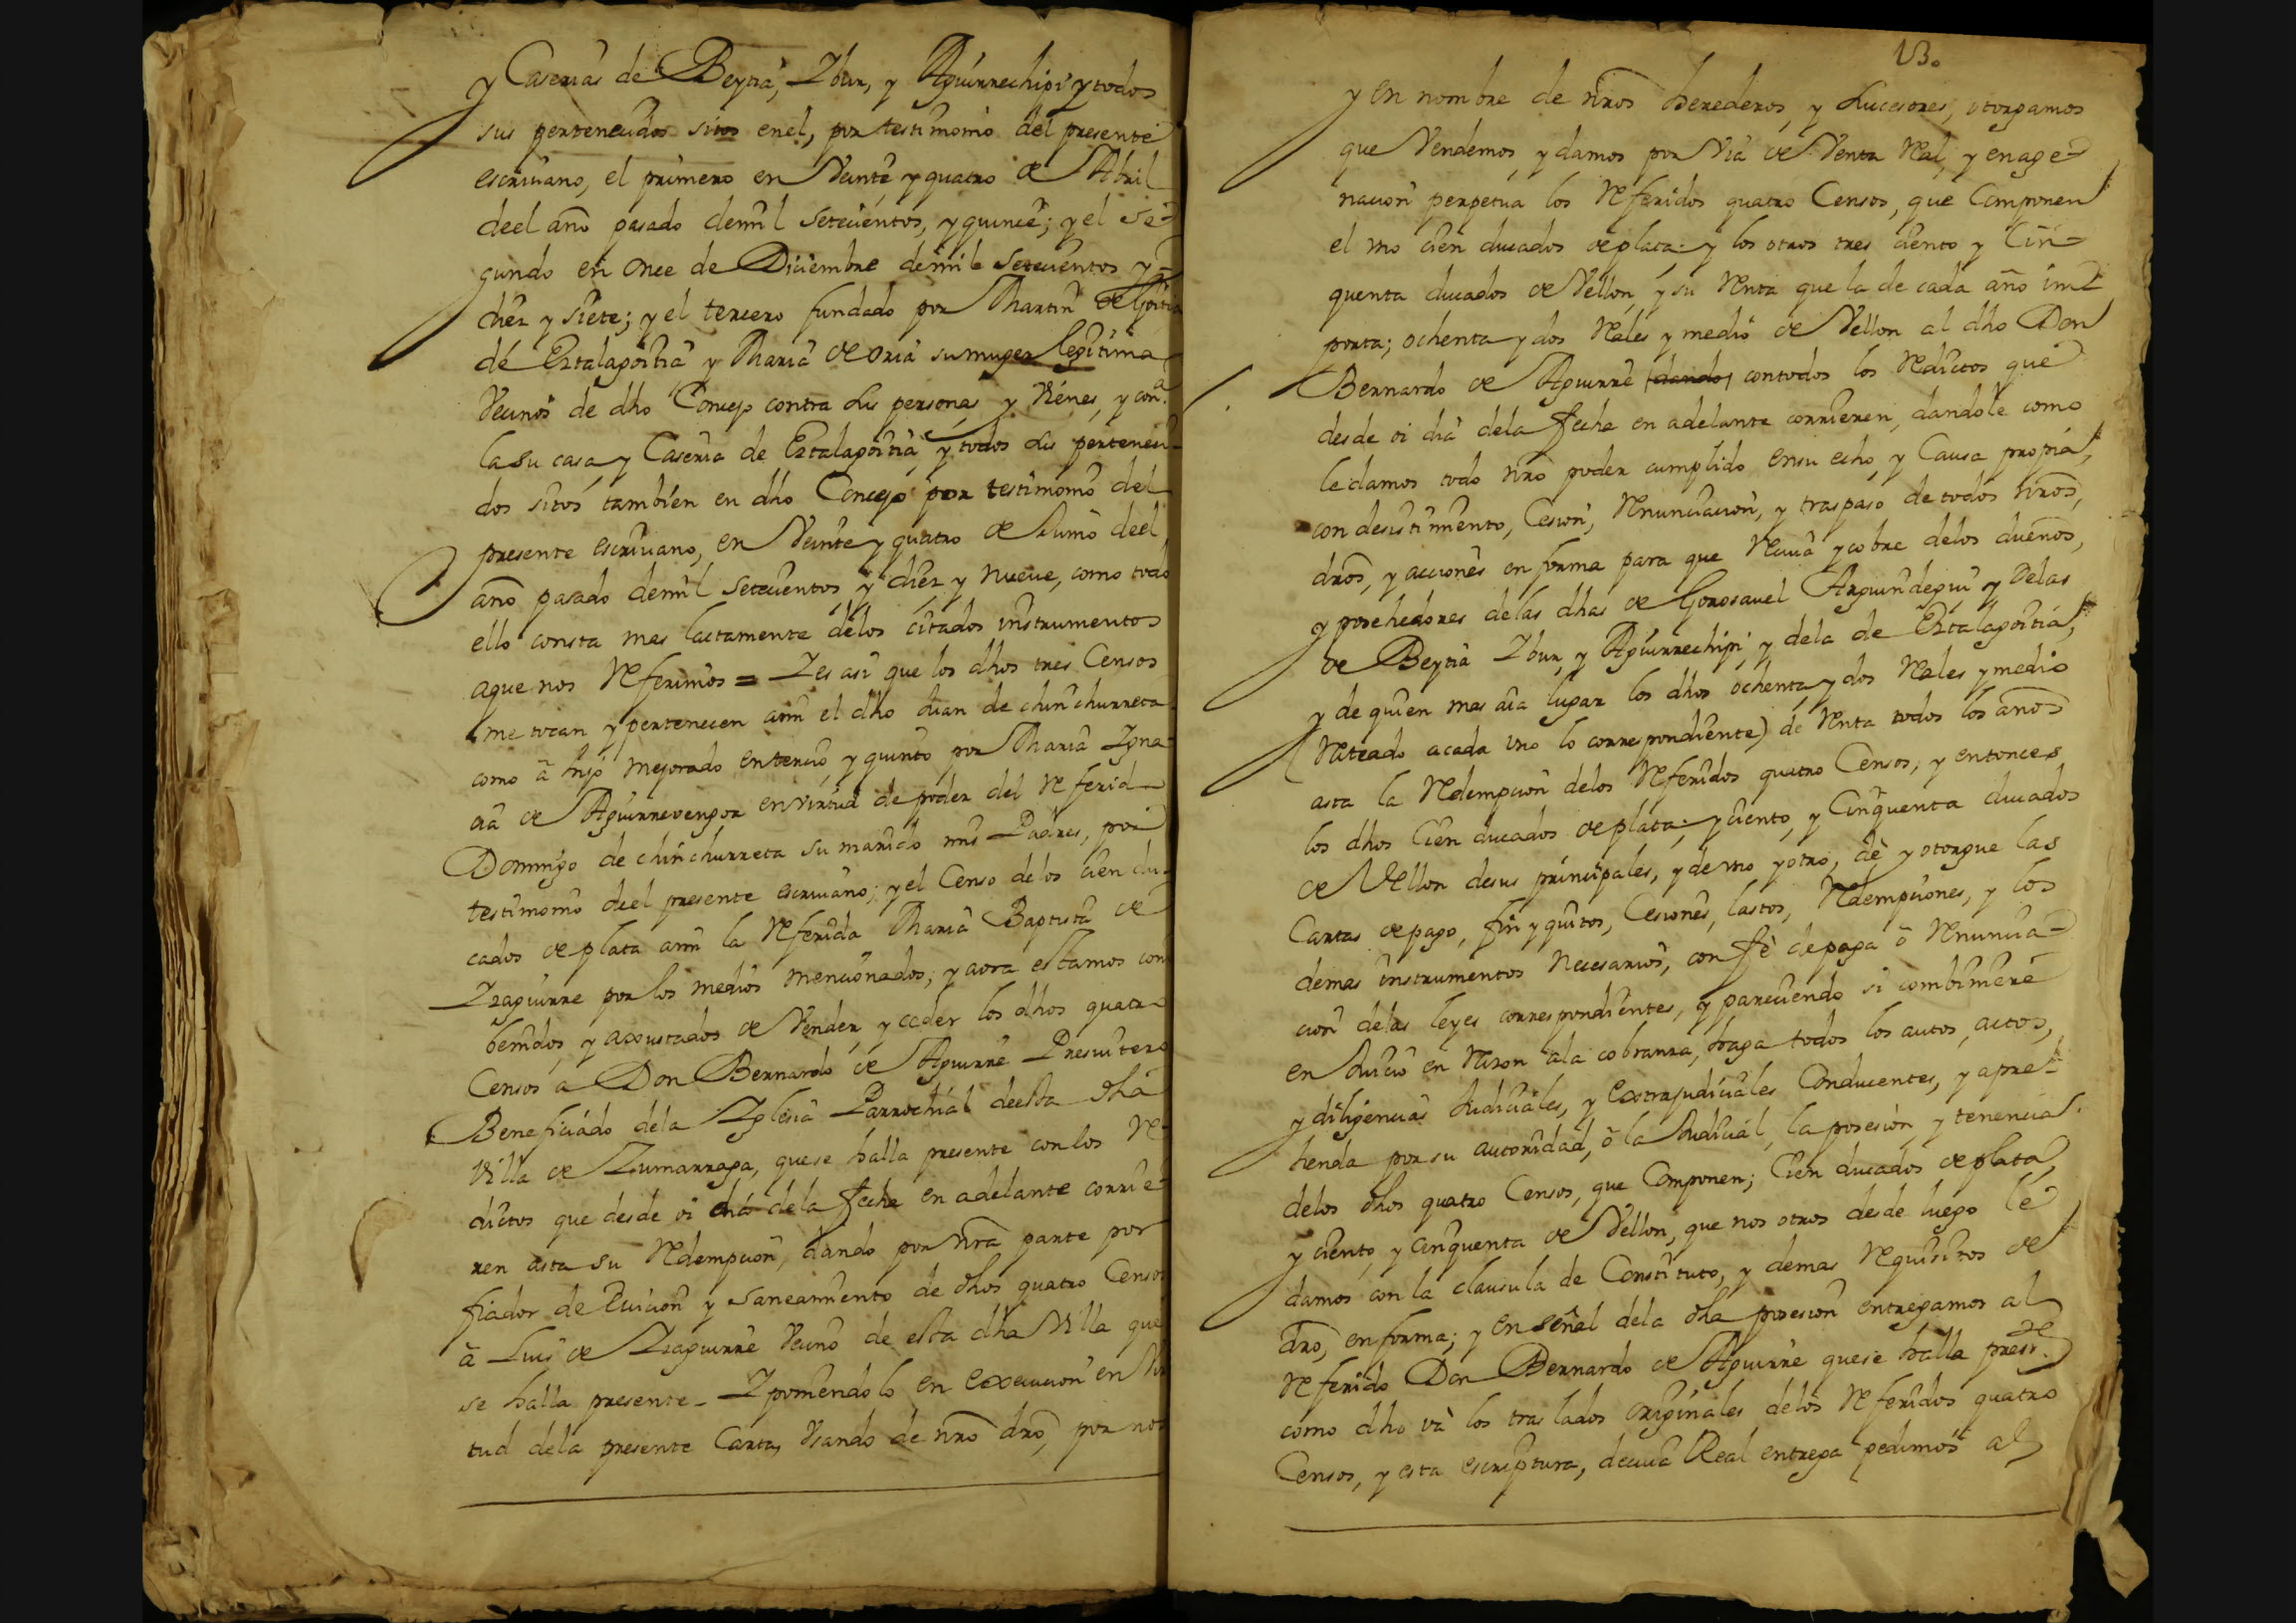 y Caserias de Beytia, Ybur, y Aguirrechipi y todos
sus pertenecidos sitos enel, por testimonio del presente
escriuano, el primero en Veinte y quatro de Abril
deel año pasado demil setecientos, y quince; y el se-
gundo en once de Diciembre demil setecientos y
diez y siete; y el tercero fundado por Martin de Goitia
de Eztalagoitia y Maria de oria su muger legitima
Vecinos de dho Concejo contra sus personas y Vienes, y con
la su casa y Caseria de Eztalagoitia y todos sus perteneci-
dos sitos tambien en dho Concejo por testimonio del
presente escriuano, en Veinte y quatro de Junio deel
año pasado demil setecientos, y diez y nueve, como todo
ello consta mas lactamente delos citados instrumentos
aque nos Referimos = Yes asi que los dhos tres Censos
me tocan y pertenecen ami el dho Juan de chinchurreta
como â hijo mejorado entercio y quinto por Maria Ygna-
cia de Aguirrevengoa envirtud de poder del Referido
Domingo de chinchurreta su marido mis Padres, por
testimonio deel presente escriuano; y el Censo delos cien du-
cados de plata ami la Referida Maria Baptista de
Yzaguirre por los medios mencionados; y aora estamos con
benidos, y axustados de Vender, y ceder los dhos quatro
Censos a Don Bernardo de Aguirre Presuitero
Beneficiado dela Yglesia Parrochial deesta dha
Villa de Zumarraga, quese halla presente conlos Re-
ditos que desde oi dia dela fecha en adelante corrie-
ren asta su Redempcion, dando por nra parte por
fiador de Euicion y saneamiento de dhos quatro Censos
â Luis de Yzaguirre Vecino de esta dha Villa que
se halla presente - Y poniendolo en execucion en Vir
tud dela presente Carta, Vsando de nro dro, por nos
13.
y en nombre de nros herederos, y sucesores, otorgamos
que Vendemos, y damos por Via de Venta Real, y enage-
nacion perpetua los Referidos quatro Censos, que Componen
el vno cien ducados de plata; y los otros tres ciento y Cin-
quenta ducados de Vellon, y su Renta que la de cada año im-
porta; ochenta y dos Reales y medio de Vellon al dho Don
Bernardo de Aguirre (dando) contodos los Redictos que
desde oi dia dela fecha en adelante corrieren, dandole como
ledamos todo nro poder cumplido ensu echo, y Causa propia,
con desistimento, Cesion, Renunciacion, y traspaso de todos nros,
dros, y acciones en forma para que Reciua y cobre delos dueños,
y posehedores de las dhas de Gorosauel Arguindegui y delas
de Beytia Ybur, y Aguirrechipi y dela de Eztalagoitia,
y de quien mas aia lugar los dhos ochenta y dos Reales y medio
(Rateado acada vno lo correspondiente) de Renta todos los años
asta la Redempcion delos Referidos quatro Censos; y entonces
los dhos Cien ducados de plata; y ciento, y Cinquenta ducados
de Vellon desus principales, y de vno y otro, dè y otorgue las
Cartas de pago, fin y quitos, Cesiones, lastos, Redempciones, y los
demas instrumentos necesarios, con fè de paga ô Renuncia-
cion delas leyes correspondientes, y pareciendo si combiniere
en Juicio en Razon ala cobranza, haga todos los autos, actos,
y diligencias Judiciales, y Extrajudiciales Conducentes, y apre-
henda por su autoridad, ô la Judicial, la posesion, y tenencia
delos dhos quatro Censos, que Componen; Cien ducados de plata,
y ciento, y cinquenta de Vellon, que nos otros desde luego le
damos con la clausula de Constituto, y demas Requisitos de
dro, enforma; y en señal dela dha posesion entregamos al
Referido Don Bernardo de Aguirre quese halla preste
como dho và los traslados originales delos Referidos quatro
Censos, y esta escriptura, decuia Real entrega pedimos al